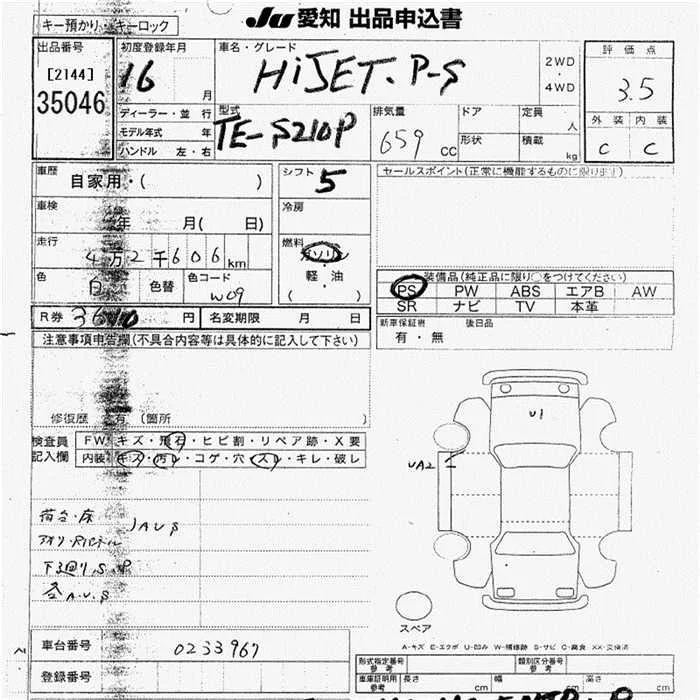 JU 愛知 出品申込書
キー預かり キーロック
出品番号
[2144]
35046
初度登録年月
16
月
ディーラー・並 行
モデル年式 年
ハンドル 左・右
車名・グレード
HiJET. P-S
2WD
4WD
評 価 点
3.5
外 装 内 装
C C
型式
TE-S210P
排気量
659 CC
ドア
形状
定員
人
積載
kg
車歴
自家用・( )
車検
年 月( 日)
走行
4万2千606km
色
白
色替
色コード
W09
シフト
5
冷房
燃料
ガソリン
軽・油
( )
セールスポイント(正常に機能するものに限ります)
装備品(純正品に限り○をつけてください)
PS PW ABS エアB AW
SR ナビ TV 本革
新車保証書 後日品
有・無
R券 円
名変期限 月 日
注意事項申告欄(不具合内容等は具体的に記入して下さい)
修復歴 有 (箇所 )
検査員
記入欄
FW キズ・飛石・ヒビ割・リペア跡・X要
内装 キズ・汚レ・コゲ・穴・スレ・キレ・破レ
荷台・床
AUS
下廻りS.P
各A.U.S
U1
UA2
スペア
A-キズ E-エクボ U-凹み W-補修跡 S-サビ C-腐食 XX-交換済
車台番号
0233967
登録番号
型式指定番号
参考
類別区分番号
参考
車庫証明用
参考
長さ cm 幅 cm 高さ cm